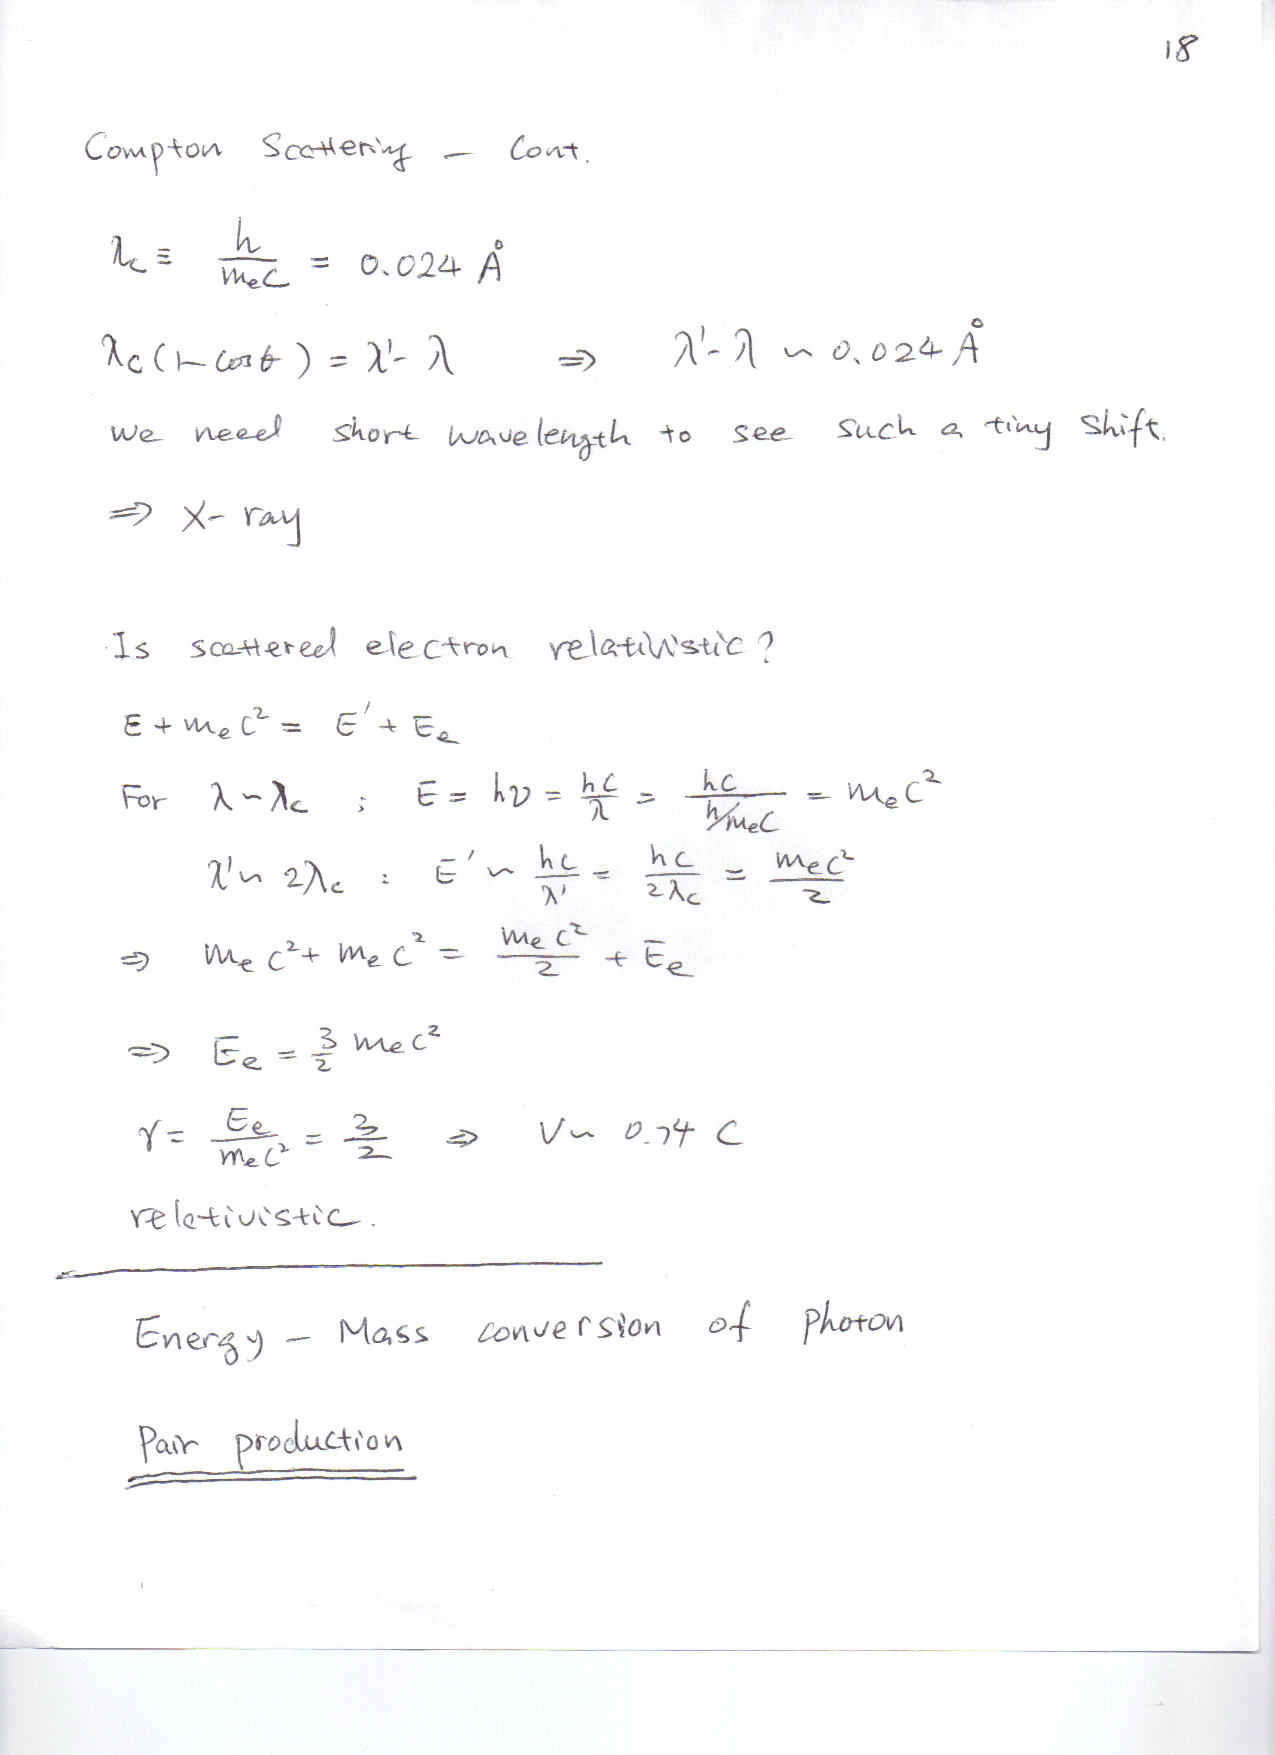 18
Compton Scattering – Cont.
λc ≡ h/mec = 0.024 Å
λc(1-cosθ) = λ'-λ ⇒ λ'-λ ~ 0.024 Å
We need short wavelength to see such a tiny shift.
⇒ X-ray
Is scattered electron relativistic?
E + mec² = E' + Ee
For λ~λc ; E = hν = hc/λ = hc/(h/mec) = mec²
λ'~ 2λc : E' ~ hc/λ' = hc/2λc = mec²/2
⇒ mec² + mec² = mec²/2 + Ee
⇒ Ee = 3/2 mec²
γ = Ee/mec² = 3/2 ⇒ V~ 0.74 C
relativistic.
Energy – Mass conversion of photon
Pair production